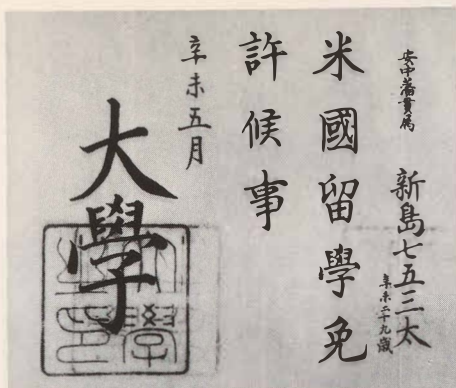 安中藩貫属
新島七五三太
辛未二十九歳
米國留學免
許候事
辛未五月
大學